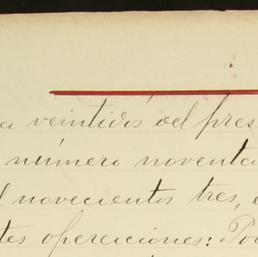 a veintidós del pres
número noventa
l novecientos tres, e
tes operaciones: Po